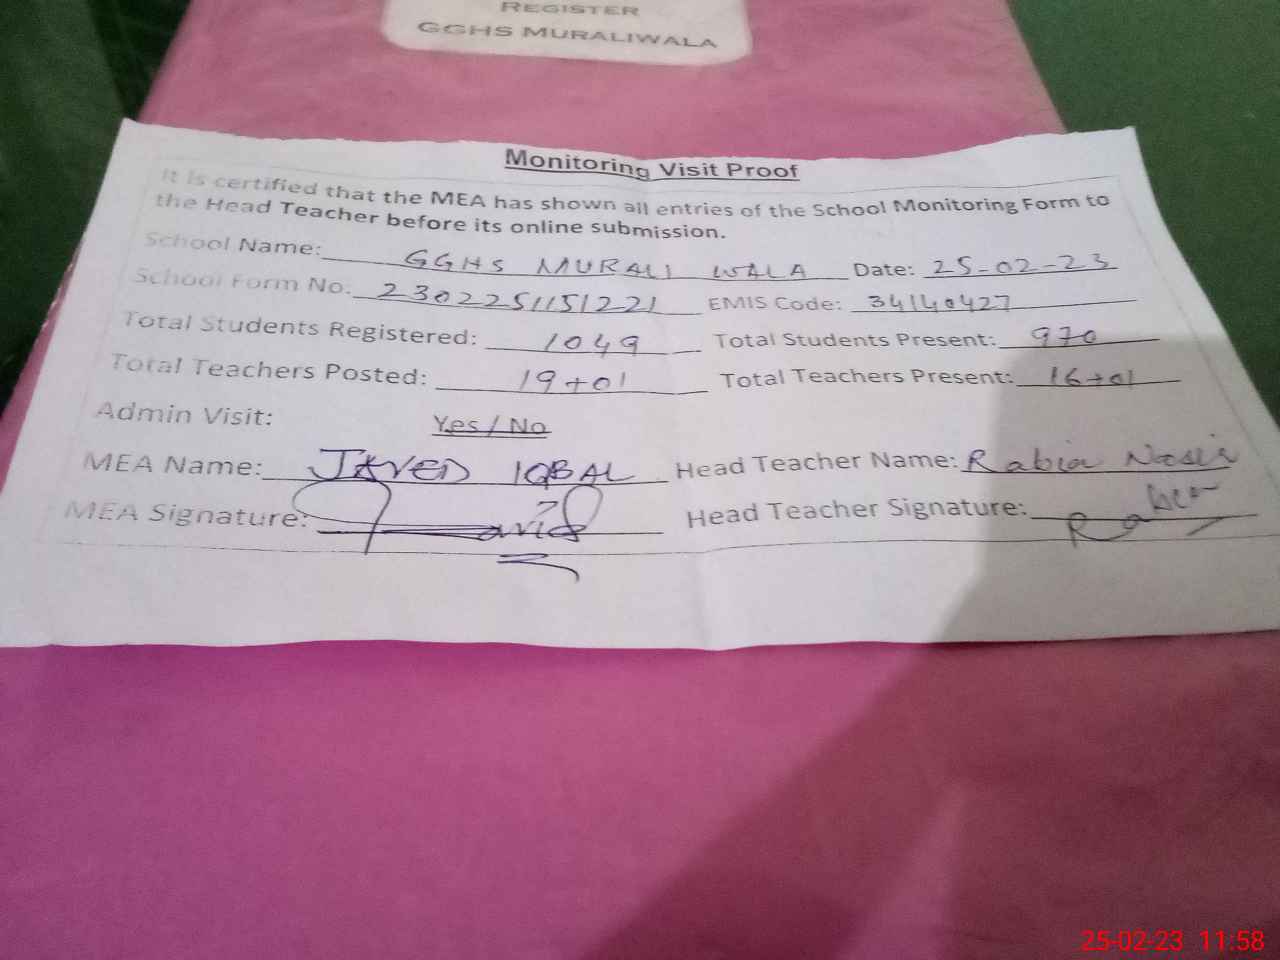 REGISTER
GGHS MURALIWALA
Monitoring Visit Proof
It is certified that the MEA has shown all entries of the School Monitoring Form to
the Head Teacher before its online submission.
School Name: GGHS MURALI WALA Date: 25-02-23
School Form No: 2302251151221 EMIS Code: 34140427
Total Students Registered: 1049 Total Students Present: 970
Total Teachers Posted: 19+01 Total Teachers Present: 16+01
Admin Visit: Yes / No
MEA Name: JAVED IQBAL Head Teacher Name: Rabia Nasir
MEA Signature: Head Teacher Signature:
25-02-23 11:58